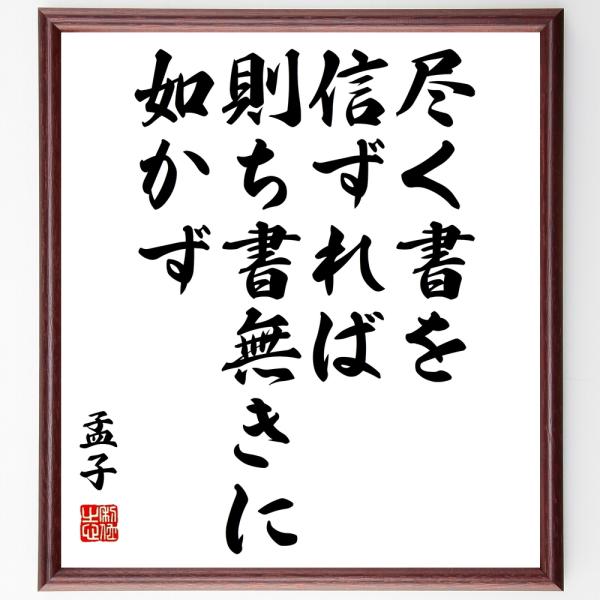 尽く書を
信ずれば
則ち書無きに
如かず
孟子